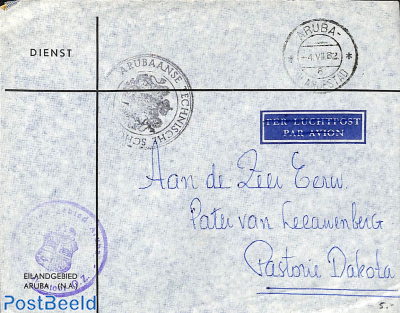 DIENST
ARUBA-
4.VII.62
ARUBAANSE TECHNISCHE SCH
PER LUCHTPOST
PAR AVION
Aan de Zeer Eerw.
Pater van Leeuwenberg
Pastorie Dakota
EILANDGEBIED
ARUBA (N.A.)
5.-
PostBeeld